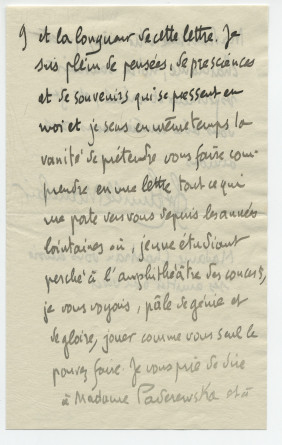 9 et la longueur de cette lettre. Je
suis plein de pensées, de presciences
et de souvenirs qui se pressent en
moi et je sens en même temps la
vanité de prétendre vous faire com-
prendre en une lettre tout ce qui
me porte vers vous depuis les années
lointaines où, jeune étudiant
perché à l'amphithéâtre des concerts,
je vous voyais, pâle de génie et
de gloire, jouer comme vous seul le
pouvez faire. Je vous prie de dire
à Madame Paderewska et à